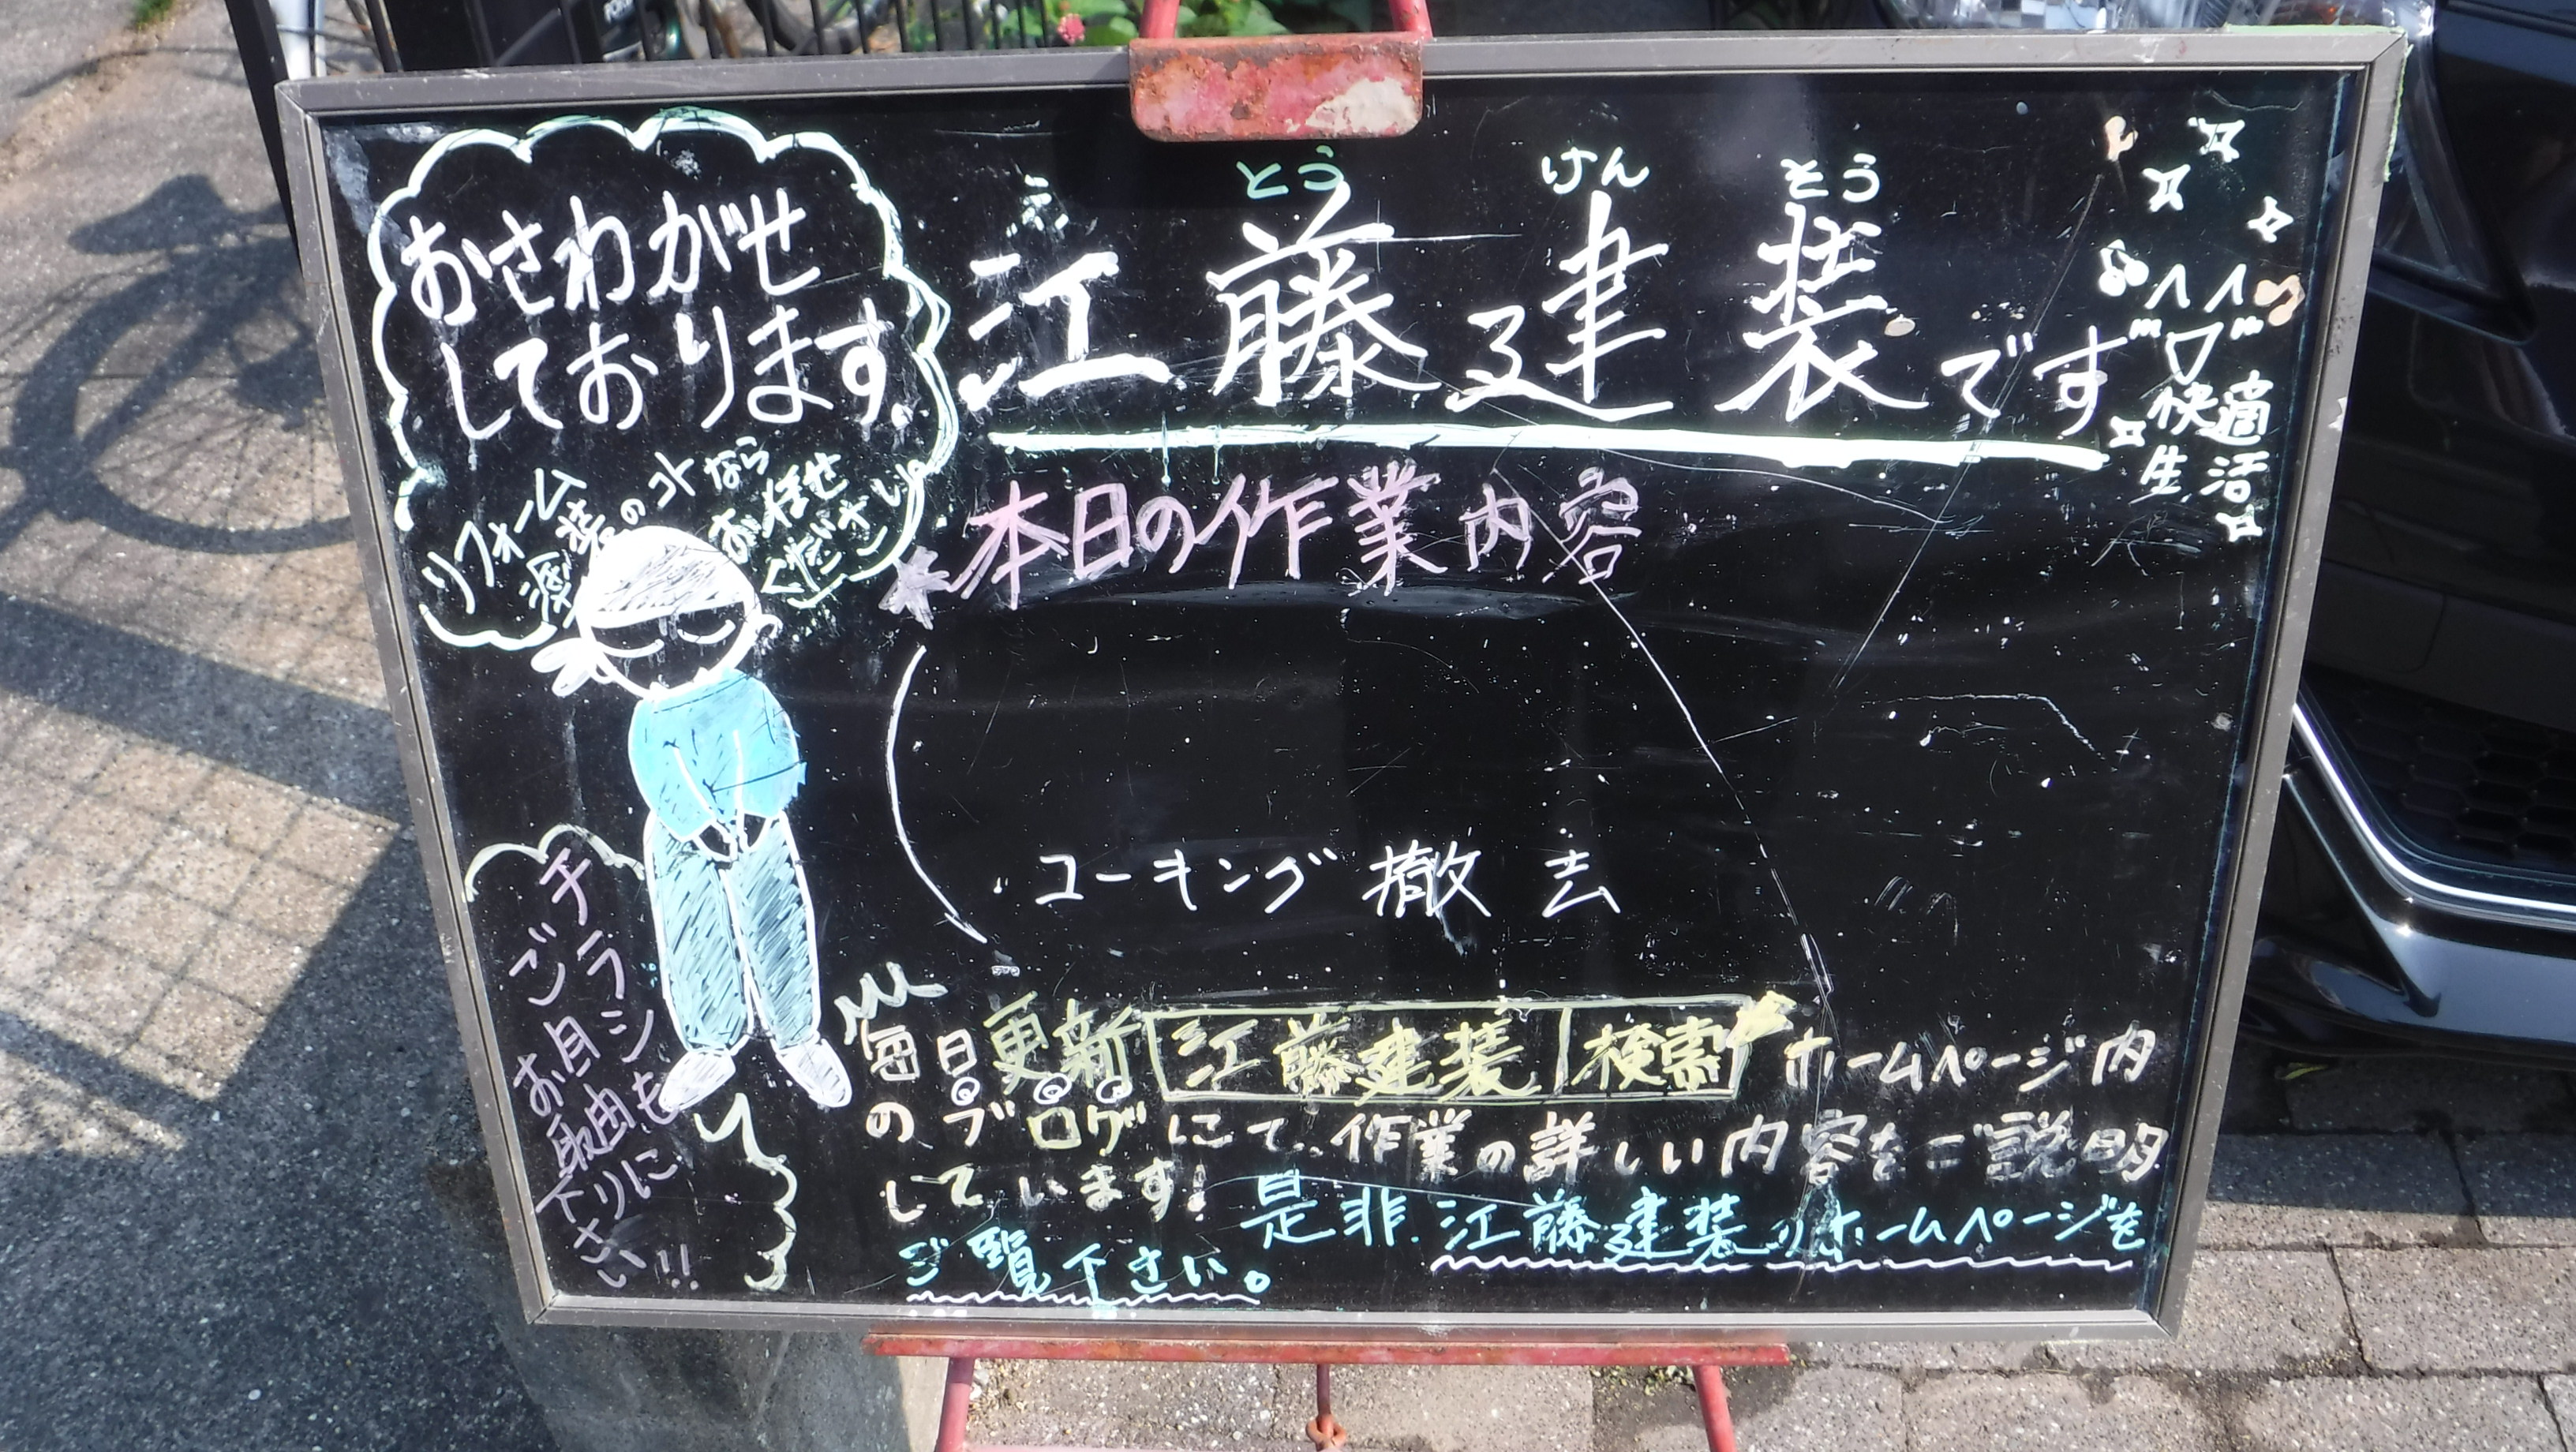 おさわがせ
しております。
リフォーム
塗装のコトなら
お任せ
ください
とう けん そう
江藤建装です
快適
生活
本日の作業内容
コーキング撤去
毎日更新 江藤建装 検索 ホームページ内
のブログにて、作業の詳しい内容をご説明
しています!
是非、江藤建装のホームページを
ご覧下さい。
チラシも
ご自由に
お取り
下さい!!